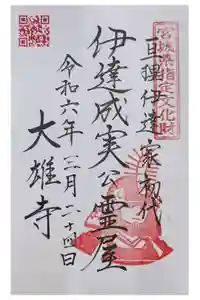 宮城県指定文化財
亘理伊達家初代
伊達成実公靈屋
令和六年三月二十四日
大雄寺